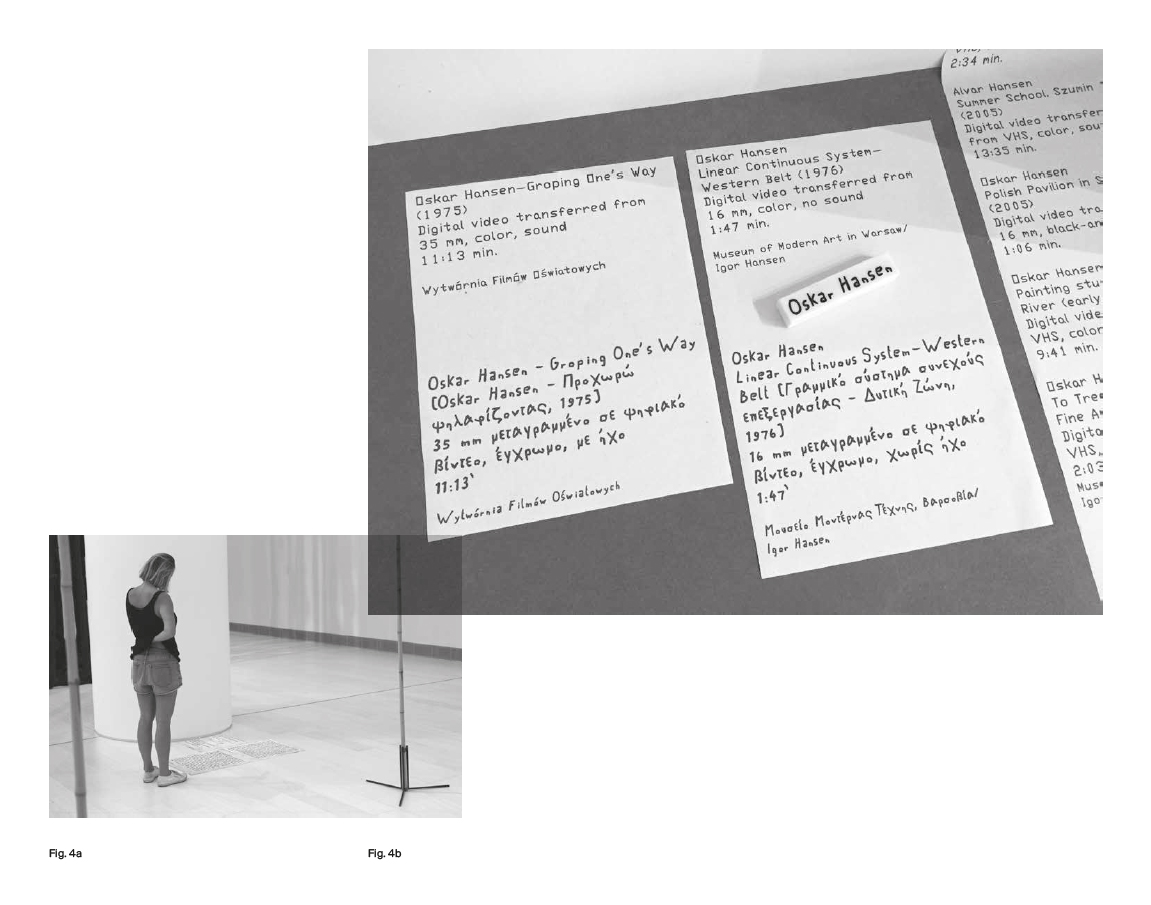 Oskar Hansen–Groping One's Way
(1975)
Digital video transferred from
35 mm, color, sound
11:13 min.
Wytwórnia Filmów Oświatowych
Oskar Hansen – Groping One's Way
[Oskar Hansen – Προχωρώ
ψηλαφίζοντας, 1975]
35 mm μεταγραμμένο σε ψηφιακό
βίντεο, έγχρωμο, με ήχο
11:13`
Wytwórnia Filmów Oświatowych
Oskar Hansen
Linear Continuous System–
Western Belt (1976)
Digital video transferred from
16 mm, color, no sound
1:47 min.
Museum of Modern Art in Warsaw/
Igor Hansen
Oskar Hansen
Oskar Hansen
Linear Continuous System–Western
Belt [Γραμμικό σύστημα συνεχούς
επεξεργασίας – Δυτική Ζώνη,
1976]
16 mm μεταγραμμένο σε ψηφιακό
βίντεο, έγχρωμο, χωρίς ήχο
1:47`
Μουσείο Μοντέρνας Τέχνης, Βαρσοβία/
Igor Hansen
2:34 min.
Alvar Hansen
Summer School. Szumin
(2005)
Digital video transfer
from VHS, color, sou
13:35 min.
Oskar Hansen
Polish Pavilion in S
(2005)
Digital video tra
16 mm, black-an
1:06 min.
Oskar Hansen
Painting stu
River (early
Digital vide
VHS, color
9:41 min.
Oskar H
To Tree
Fine Ar
Digita
VHS,
2:03
Muse
Igo
Fig. 4a
Fig. 4b